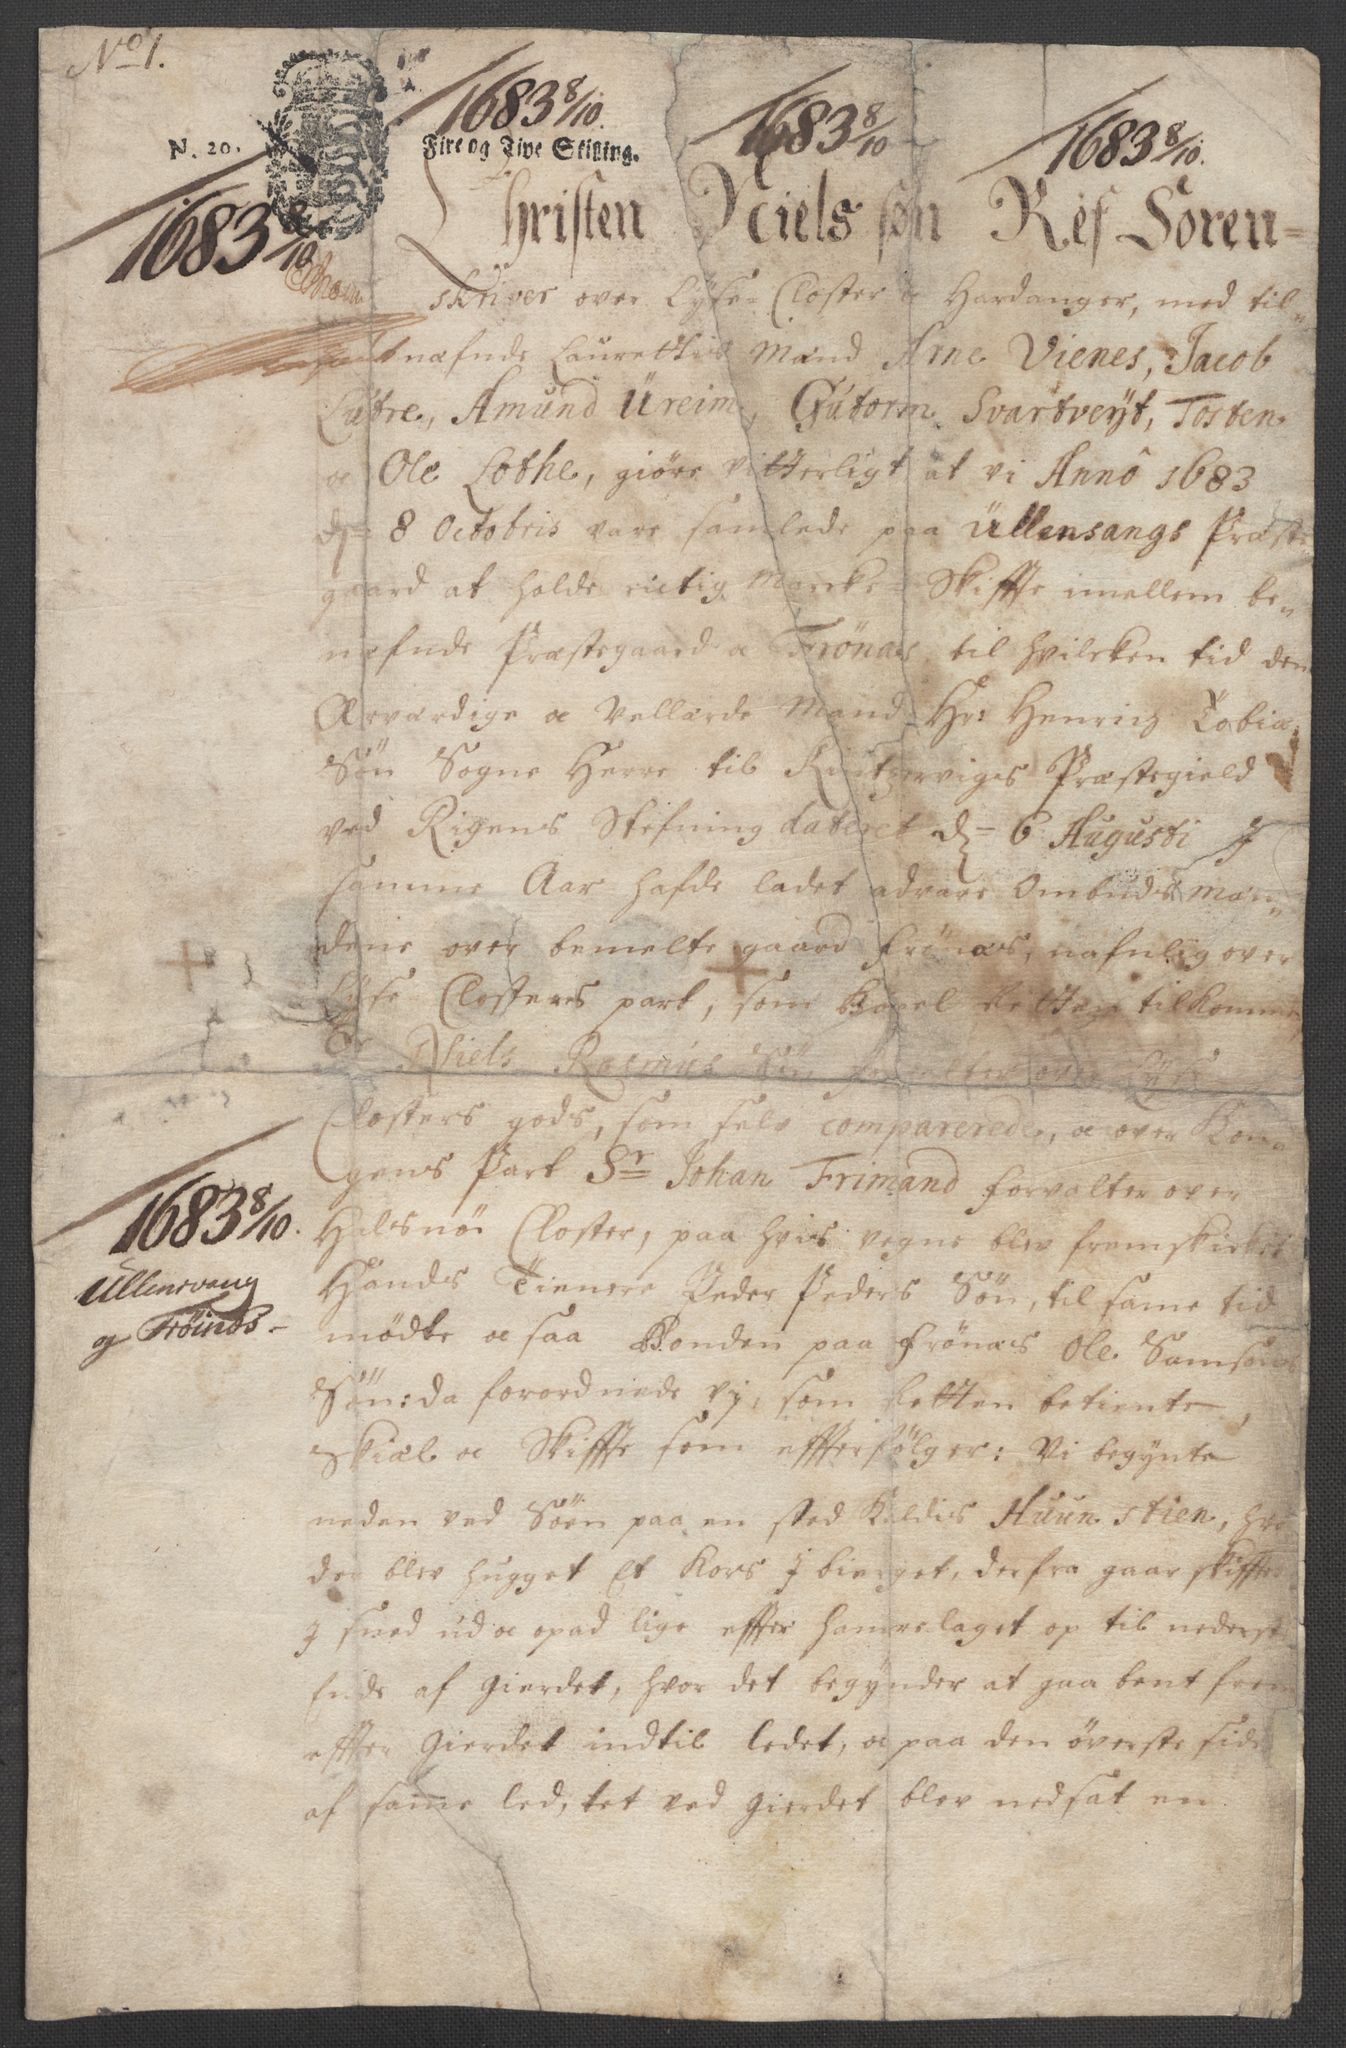 No 1.
N. 20.
Fire og Tive Skilling.
1683 8/10.
1683 8/10
1683 8/10.
1683 8/10
Christen Niels søn Ref Soren=
skriver over Lyse Closter & Hardanger, med til=
næfnde Laurettis Mænd Arne Vienes, Jacob
Lutre, Amund Ureim, Gutorm Svartveyt, Tosten
& Ole Lothe, giøre vitterligt at vi Anno 1683
dn 8 Octobris vare samlede paa Ullensangs Præste
gaard at holde rictig Marcke-Skiffte imellem be=
næfnde Præstegaard & Frönæs, til hvilcken tid den
Ærværdige & Vellærde Mand Hr: Henrich Tobiæ
Søn Sogne Herre til Kintzerviges Præstegield
ved Rigens Stefning dateret dn 6 Augusti J
samme Aar hafde ladet advare Ombuds Mæn=
dene over bemelte gaard Frönæs, nafnlig over
Lyse Closters part, som Capel Retten tilkomme
Sr Niels Rasmus Søn forvalter over Lyse
Closters gods, som selv comparerede, & over Kon=
gens Part Sr Johan Frimand forvalter over
Halsnöe Closter, paa hvis vegne blev fremskicket
Hands Tienere Peder Peders Søn, til same tid
mødte & saa Bonden paa Frönæs Ole Samsons
Søn: da forordnede vj, som Retten betiente,
Skiæl & Skiffte som effterfølger: Vi begynte
neden ved Søen paa en sted Kaldis Huun stien, hvor
der blev hugget Et Kors J bierget, derfra gaar skifftet
J sned ud & opad lige effter hamrelaget op til nederste
Ende af gierdet, hvor det begynder at gaa bent frem
effter gierdet indtil ledet, & paa den øverste side
af same led, tet ved gierdet blev nedsat en
1683 8/10.
Ullensvang
og Frøinæs.